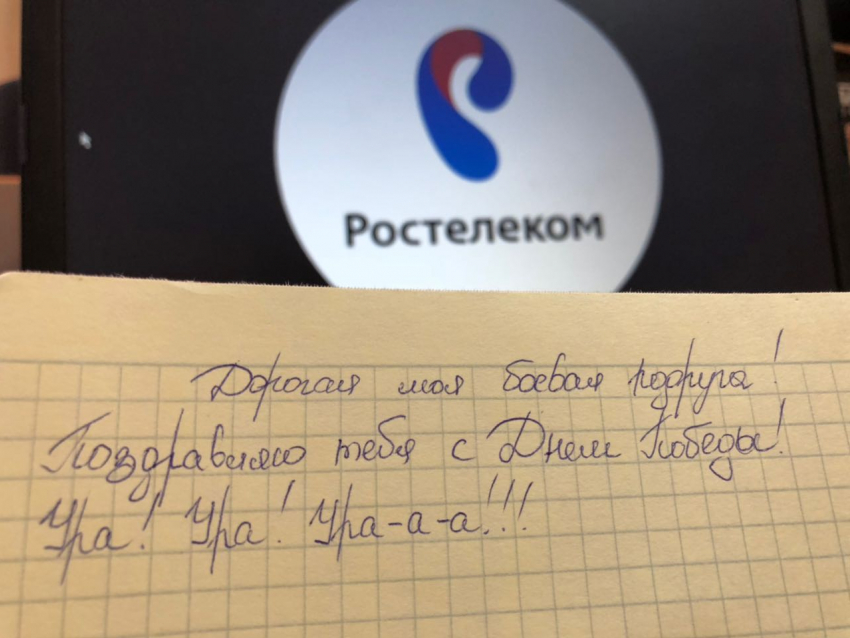 Ростелеком
Дорогая моя боевая подруга!
Поздравляю тебя с Днем Победы!
Ура! Ура! Ура-а-а!!!